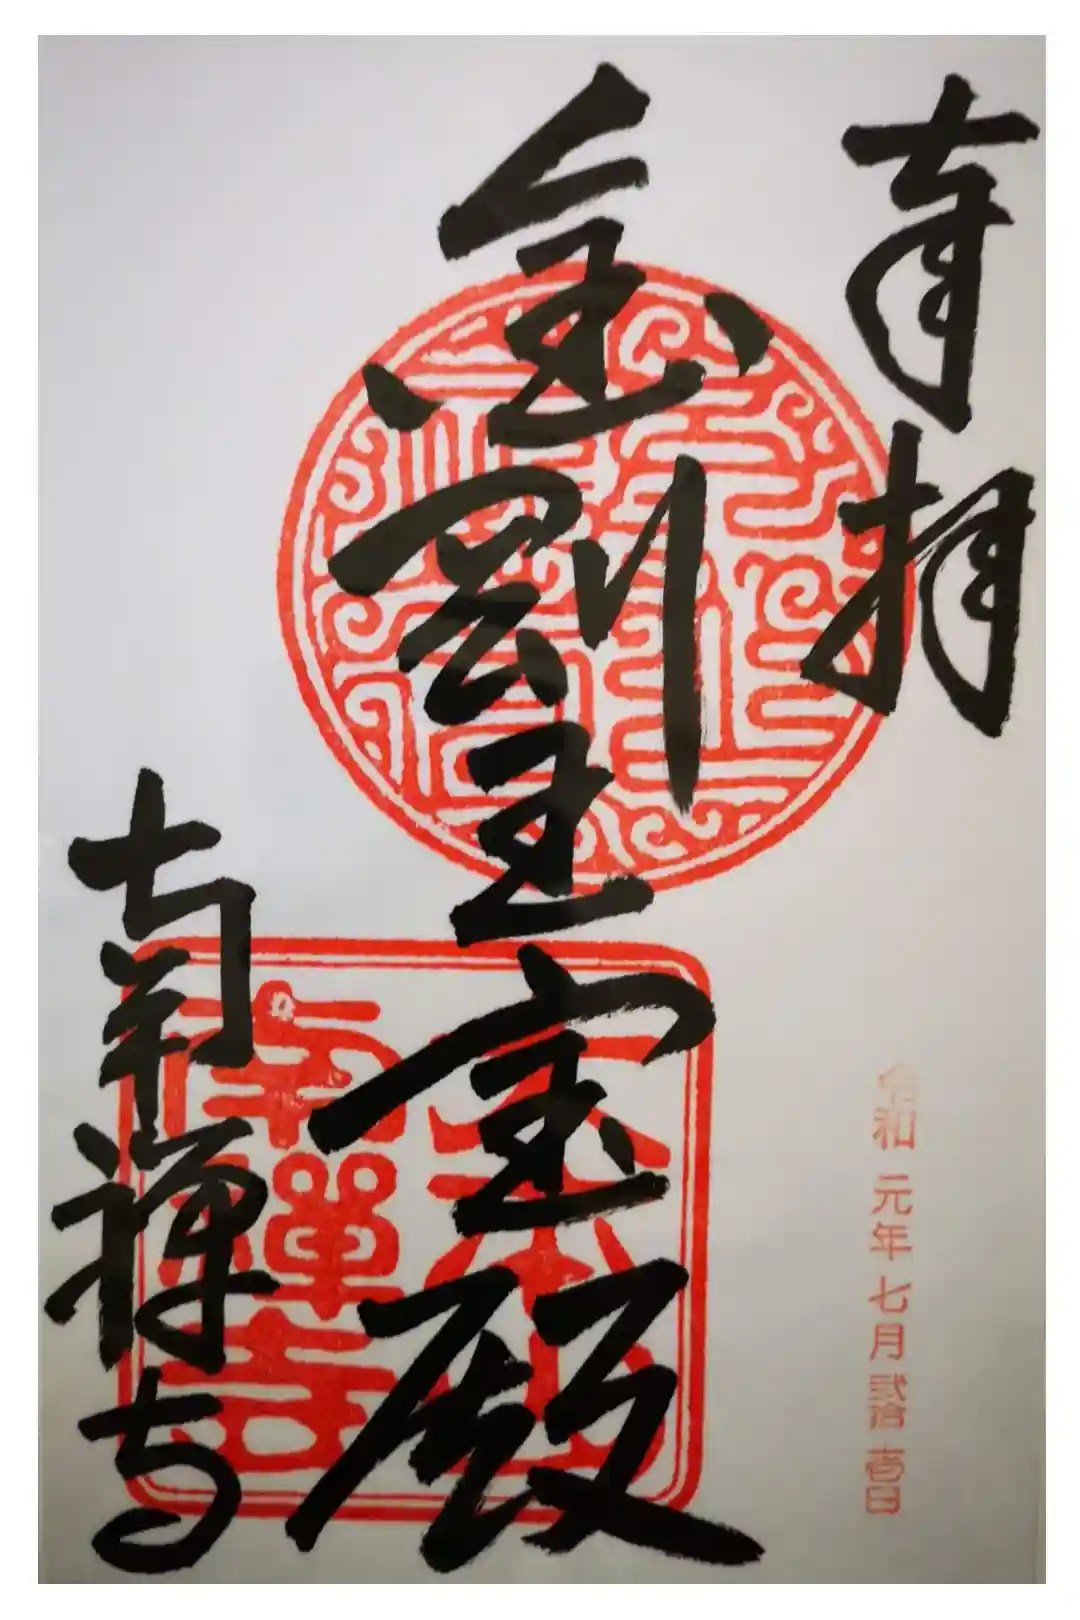 奉拝
令和元年七月弐拾壱日
金剛王宝殿
南禅寺
大本山
南禪寺